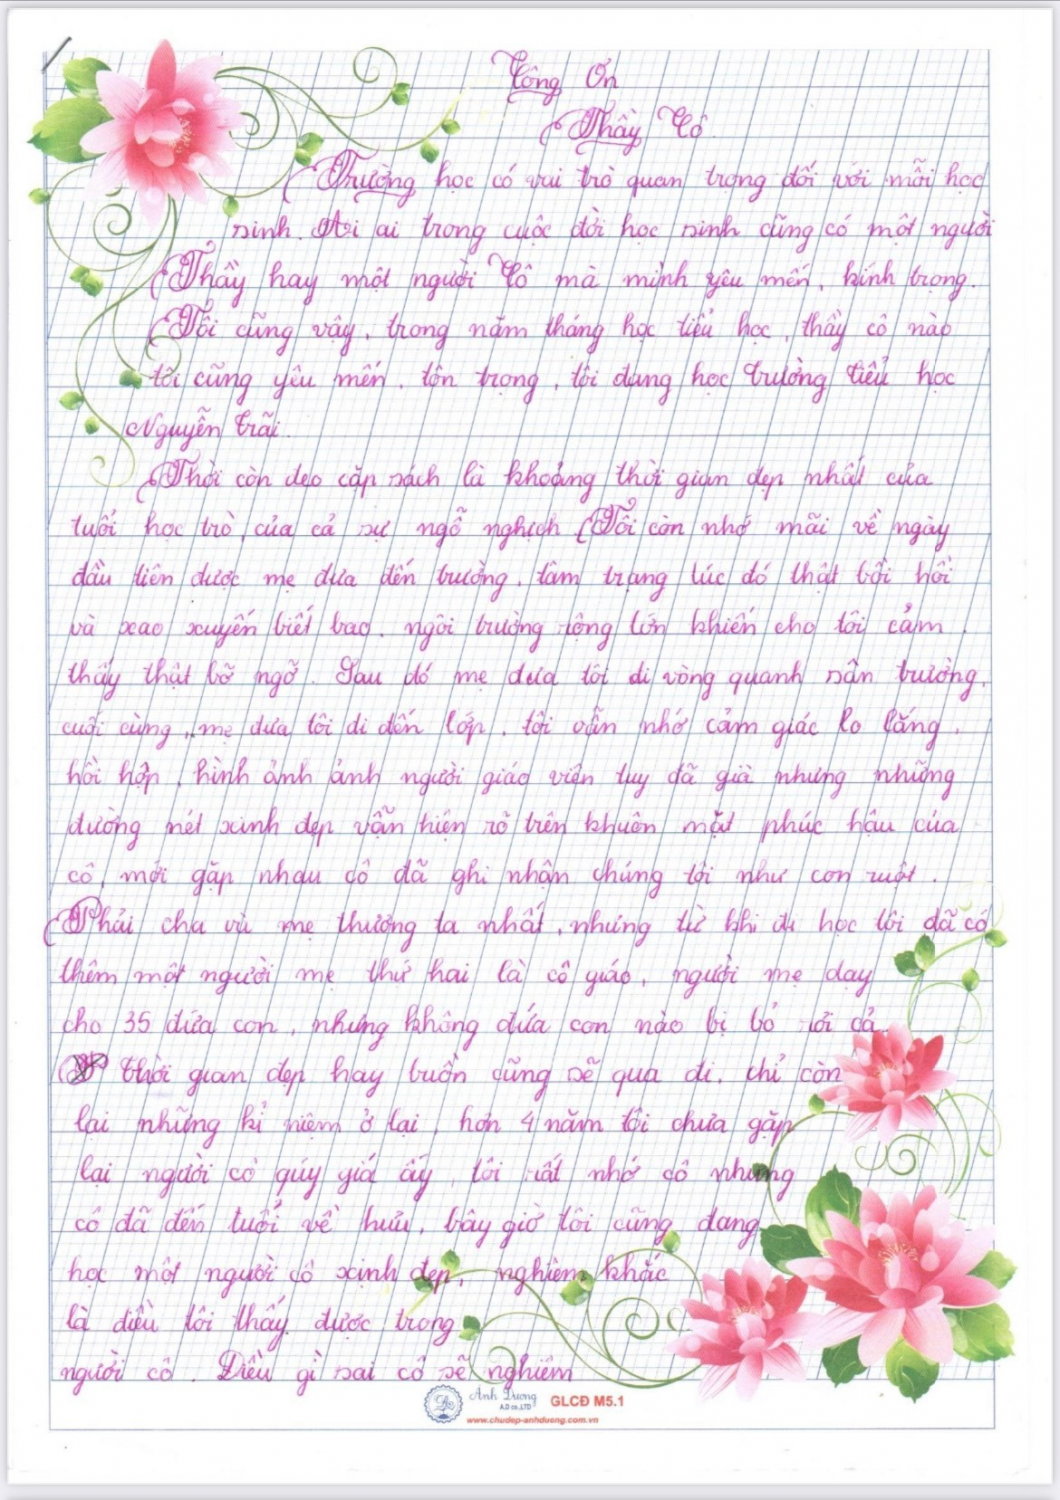 Công Ơn
Thầy Cô
Trường học có vai trò quan trọng đối với mỗi học
sinh. Ai ai trong cuộc đời học sinh cũng có một người
Thầy hay một người Cô mà mình yêu mến, kính trọng.
Tôi cũng vậy, trong năm tháng học tiểu học, thầy cô nào
tôi cũng yêu mến, tôn trọng, tôi đang học trường tiểu học
Nguyễn Trãi.
Thời còn đeo cặp sách là khoảng thời gian đẹp nhất của
tuổi học trò, của cả sự ngỗ nghịch. Tôi còn nhớ mãi về ngày
đầu tiên được mẹ đưa đến trường, tâm trạng lúc đó thật bồi hồi
và xao xuyến biết bao, ngôi trường rộng lớn khiến cho tôi cảm
thấy thật bỡ ngỡ. Sau đó mẹ đưa tôi đi vòng quanh sân trường,
cuối cùng, mẹ đưa tôi đi đến lớp, tôi vẫn nhớ cảm giác lo lắng,
hồi hộp, hình ảnh ảnh người giáo viên tuy đã già nhưng những
đường nét xinh đẹp vẫn hiện rõ trên khuôn mặt phúc hậu của
cô, mới gặp nhau cô đã ghi nhận chúng tôi như con ruột.
Phải cha và mẹ thương ta nhất, nhưng từ khi đi học tôi đã có
thêm một người mẹ thứ hai là cô giáo, người mẹ dạy
cho 35 đứa con, nhưng không đứa con nào bị bỏ rơi cả.
Thời gian đẹp hay buồn cũng sẽ qua đi, chỉ còn
lại những kỉ niệm ở lại, hơn 4 năm tôi chưa gặp
lại người cô qúy giá ấy, tôi rất nhớ cô nhưng
cô đã đến tuổi về hưu, bây giờ tôi cũng đang
học một người cô xinh đẹp, nghiêm khắc
là điều tôi thấy được trong
người cô. Điều gì sai cô sẽ nghiêm
Ánh Dương
A.D co.,LTD
GLCĐ M5.1
www.chudep-anhduong.com.vn